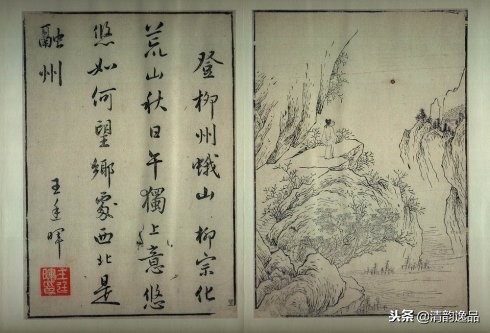 登柳州蛾山 柳宗化
荒山秋日午獨上意悠
悠如何望鄉處西北是
融州
王廷暉
头条 @清韵逸品